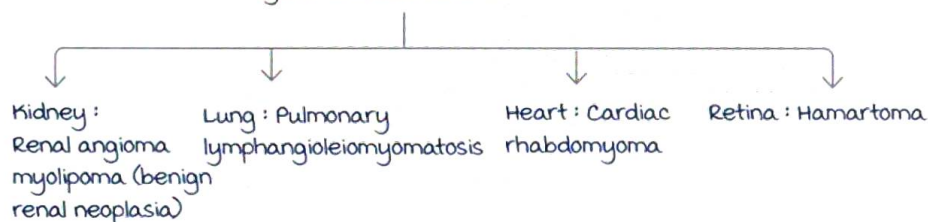 Kidney :
Renal angioma
myolipoma (benign
renal neoplasia)
Lung : Pulmonary
lymphangioleiomyomatosis
Heart : Cardiac
rhabdomyoma
Retina : Hamartoma